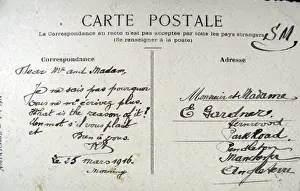 CARTE POSTALE
La Correspondance au recto n'est pas acceptée par tous les pays étrangers
(Se renseigner à la poste)
S.M
Correspondance
Dear Mr and Madam,
Je ne sais pas pourquoi
vous ne m'écrivez plus.
What is the reason of it?
Un mot s'il vous plait
et Bien à vous.
Le 25 mars 1916.
Adresse
Monsieur et Madame
E Gardner
Park Road
Pendleton
Manchester
Angleterre